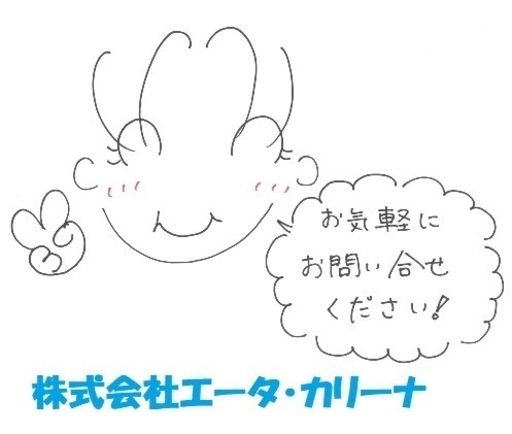 お気軽に
お問い合せ
ください!
株式会社エータ・カリーナ